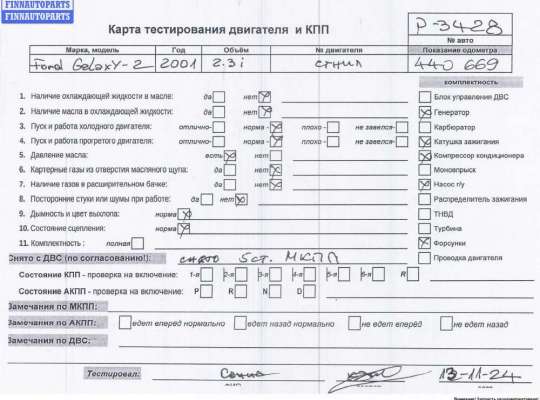 FINNAUTOPARTS
FINNAUTOPARTS
Карта тестирования двигателя и КПП
P-3428
№ авто
Марка, модель Год Объём № двигателя Показание одометра
Ford GeLaxY-2 2001 2.3i сгнил 440 669
комплектность
1. Наличие охлаждающей жидкости в масле: да нет Блок управления ДВС
2. Наличие масла в охлаждающей жидкости: да нет Генератор
3. Пуск и работа холодного двигателя: отлично- норма - плохо - не завелся- Карбюратор
4. Пуск и работа прогретого двигателя: отлично- норма - плохо - не завелся- Катушка зажигания
5. Давление масла: есть нет Компрессор кондиционера
6. Картерные газы из отверстия масляного щупа: да нет Моновпрыск
7. Наличие газов в расширительном бачке: да нет Насос г/у
8. Посторонние стуки или шумы при работе: да нет Распределитель зажигания
9. Дымность и цвет выхлопа: норма ТНВД
10. Состояние сцепления: норма Турбина
11. Комплектность : полная Форсунки
Снято с ДВС (по согласованию!): снято 5ст. МКПП Проводка двигателя
Состояние КПП - проверка на включение: 1-я 2-я 3-я 4-я 5-я 6-я R
Состояние АКПП - проверка на включение: P R N D
Замечания по МКПП:
Замечания по АКПП: едет вперед нормально едет назад нормально не едет вперёд не едет назад
Замечания по ДВС:
Тестировал: 13-11-24